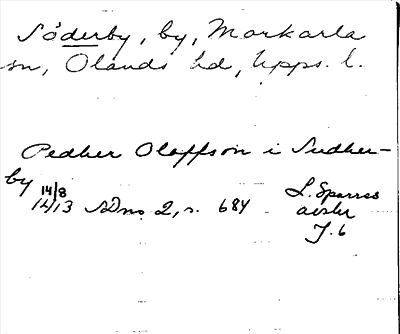 Söderby, by, Morkarla
sn, Olands hd, Upps. l.
Pedher Olaffson i Sudher-
by 14/8 1413 SDns 2, s. 684
L. Sparres
avskr
J. 6